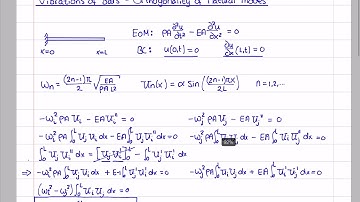 Vibrations of Bars - Orthogonality of Natural Modes
EoM: ρA ∂²u/∂t² - EA ∂²u/∂x² = 0
x=0 x=L BC: u(0,t) = 0 ∂u/∂x (L,t) = 0
ωn = (2n-1)π/2 √(EA/ρAL²) Un(x) = α Sin((2n-1)πx/2L) n = 1,2,...
-ωi² ρA Ui - EA Ui'' = 0 -ωj² ρA Uj - EA Uj'' = 0
-ωi² ρA ∫₀ᴸ Ui Uj dx - EA ∫₀ᴸ Ui'' Uj dx = 0 -ωj² ρA ∫₀ᴸ Ui Uj dx - EA ∫₀ᴸ Ui Uj'' dx = 0
∫₀ᴸ Uj Ui'' dx = [Uj Ui']₀ᴸ - ∫₀ᴸ Uj' Ui' dx
⇒ -ωi² ρA ∫₀ᴸ Ui Uj dx + EA ∫₀ᴸ Ui' Uj' dx = 0 -ωj² ρA ∫₀ᴸ Ui Uj dx + EA ∫₀ᴸ Ui' Uj' dx = 0
(ωi² - ωj²) ∫₀ᴸ Ui Uj dx = 0